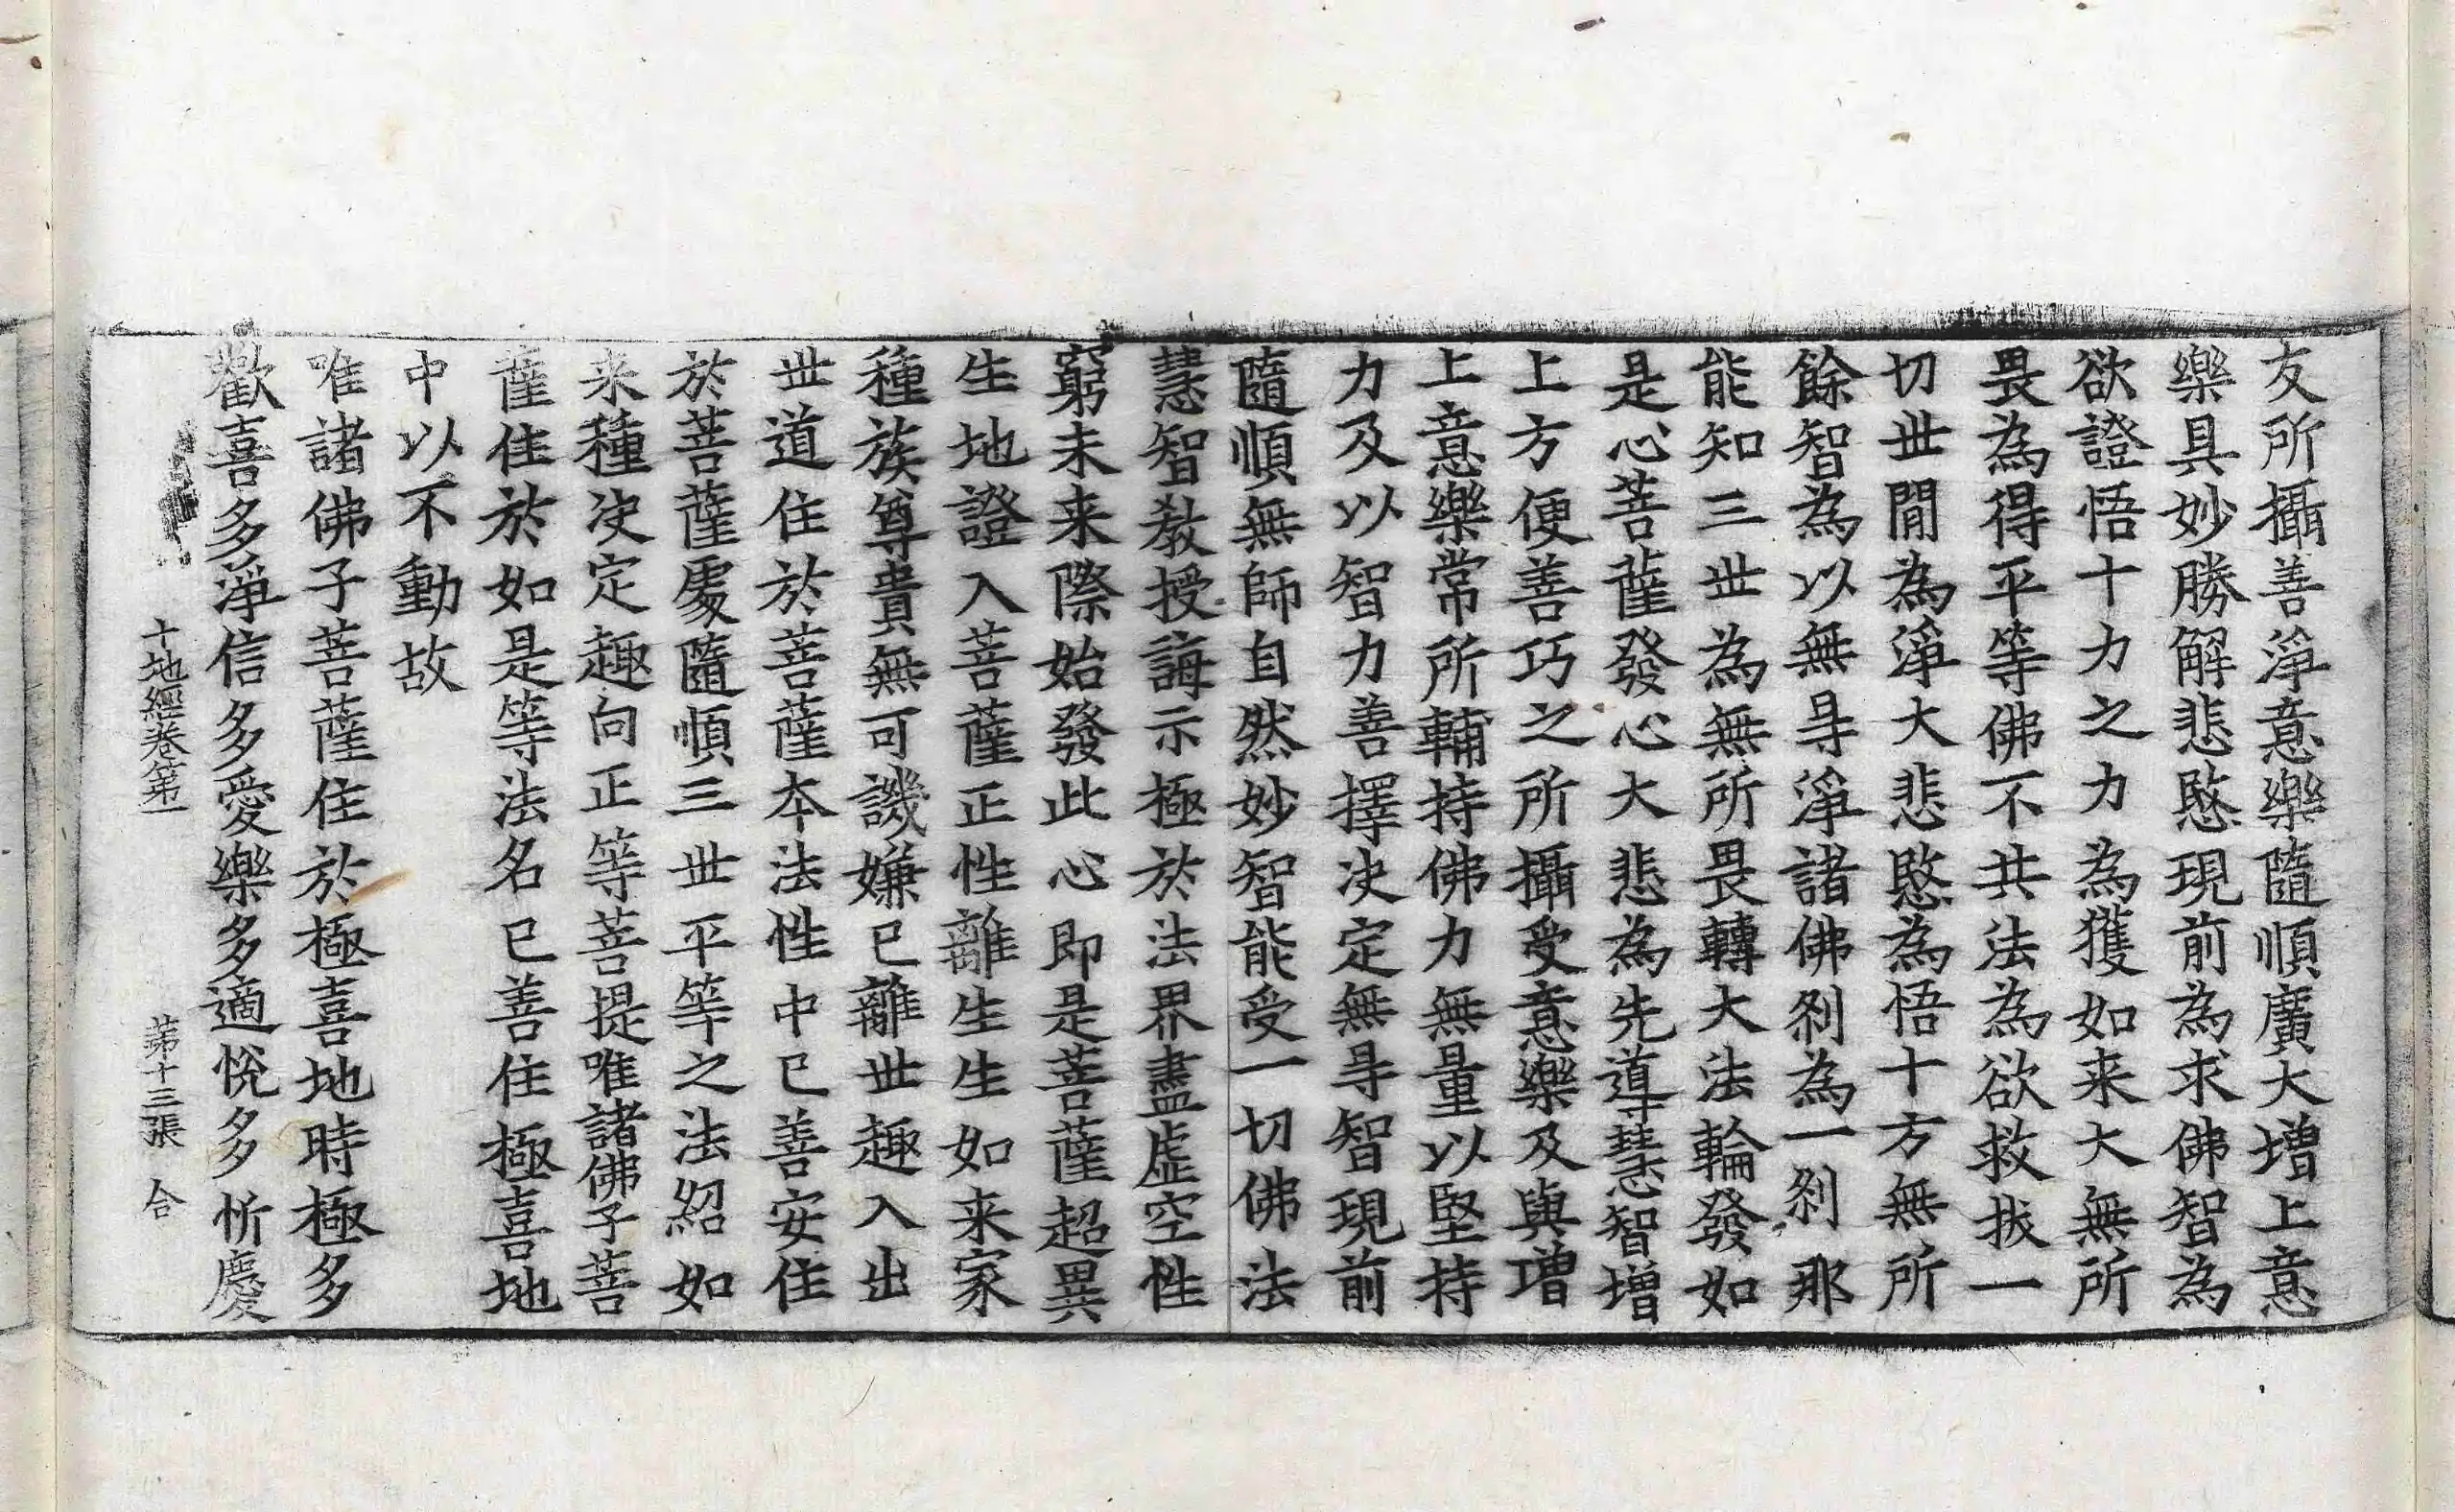 友所攝善淨意樂隨順廣大增上意
樂具妙勝解悲愍現前為求佛智為
欲證悟十力之力為獲如来大無所
畏為得平等佛不共法為欲救拔一
切世閒為淨大悲愍為悟十方無所
餘智為以無㝵淨諸佛刹為一刹那
能知三世為無所畏轉大法輪發如
是心菩薩發心大悲為先導慧智增
上方便善巧之所攝受意樂及與增
上意樂常所輔持佛力無量以堅持
力及以智力善擇决定無㝵智現前
隨順無師自然妙智能受一切佛法
慧智教授誨示極於法界盡虛空性
窮未来際始發此心即是菩薩超異
生地證入菩薩正性離生生如来家
種族尊貴無可譏嫌已離世趣入出
世道住於菩薩本法性中已善安住
於菩薩處隨順三世平等之法紹如
来種决定趣向正等菩提唯諸佛子菩
薩住於如是等法名已善住極喜地
中以不動故
唯諸佛子菩薩住於極喜地時極多
歡喜多淨信多愛樂多適悅多忻慶
十地經卷第一 第十三張 合